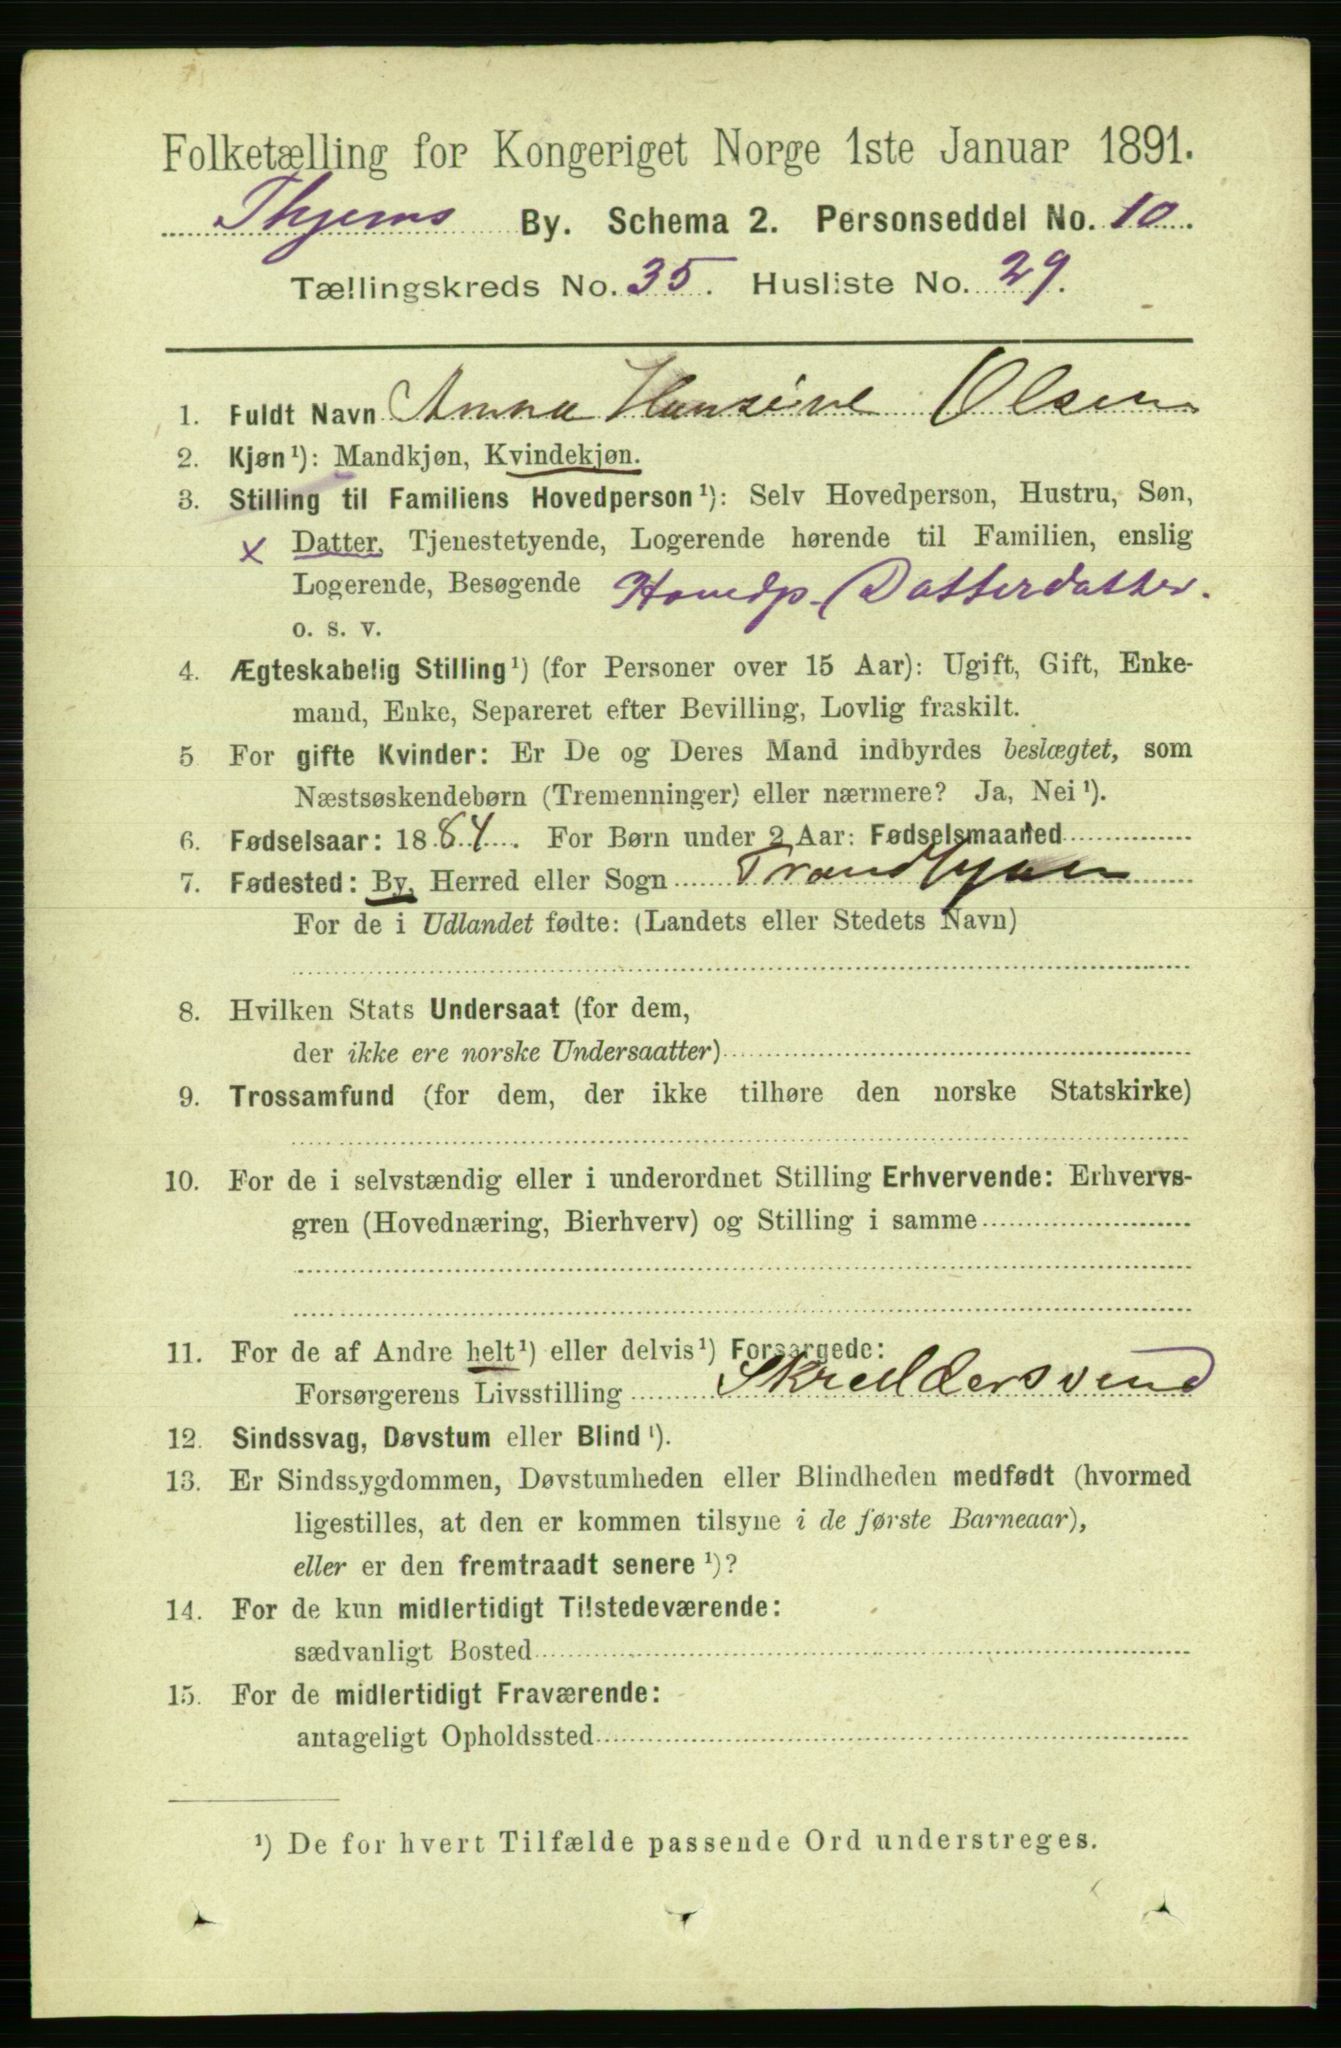 Folketælling for Kongeriget Norge 1ste Januar 1891.
Thjems By. Schema 2. Personseddel No. 10.
Tællingskreds No. 35. Husliste No. 29.
1. Fuldt Navn Anna Hansine Olsen
2. Kjøn¹): Mandkjøn, Kvindekjøn.
3. Stilling til Familiens Hovedperson¹): Selv Hovedperson, Hustru, Søn,
x Datter, Tjenestetyende, Logerende hørende til Familien, enslig
Logerende, Besøgende Hovedp. Datterdatter.
o. s. v.
4. Ægteskabelig Stilling¹) (for Personer over 15 Aar): Ugift, Gift, Enke-
mand, Enke, Separeret efter Bevilling, Lovlig fraskilt.
5 For gifte Kvinder: Er De og Deres Mand indbyrdes beslægtet, som
Næstsøskendebørn (Tremenninger) eller nærmere? Ja, Nei¹).
6. Fødselsaar: 1884. For Børn under 2 Aar: Fødselsmaaned
7. Fødested: By, Herred eller Sogn Trondhjem
For de i Udlandet fødte: (Landets eller Stedets Navn)
8. Hvilken Stats Undersaat (for dem,
der ikke ere norske Undersaatter)
9. Trossamfund (for dem, der ikke tilhøre den norske Statskirke)
10. For de i selvstændig eller i underordnet Stilling Erhvervende: Erhvervs-
gren (Hovednæring, Bierhverv) og Stilling i samme
11. For de af Andre helt¹) eller delvis¹) Forsørgede:
Forsørgerens Livsstilling Skreddersvend
12. Sindssvag, Døvstum eller Blind¹).
13. Er Sindssygdommen, Døvstumheden eller Blindheden medfødt (hvormed
ligestilles, at den er kommen tilsyne i de første Barneaar),
eller er den fremtraadt senere¹)?
14. For de kun midlertidigt Tilstedeværende:
sædvanligt Bosted
15. For de midlertidigt Fraværende:
antageligt Opholdssted
¹) De for hvert Tilfælde passende Ord understreges.